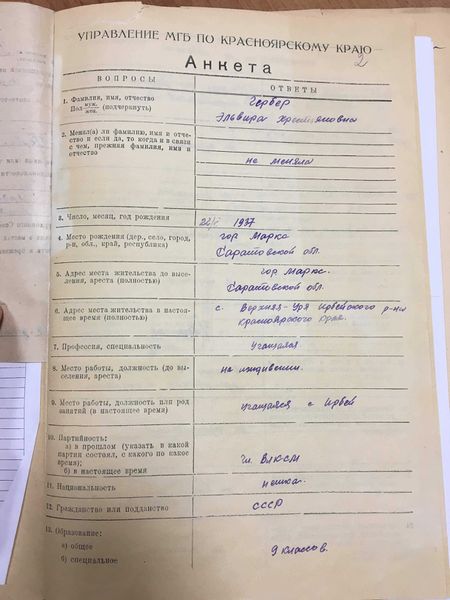 УПРАВЛЕНИЕ МГБ ПО КРАСНОЯРСКОМУ КРАЮ
2
Анкета
ВОПРОСЫ
ОТВЕТЫ
1. Фамилия, имя, отчество
Пол муж. жен. (подчеркнуть)
Гербер
Эльвира Христьяновна
2. Менял(а) ли фамилию, имя и отче-
ство и если да, то когда и в связи
с чем, прежняя фамилия, имя и
отчество
не меняла
3. Число, месяц, год рождения
1937
4. Место рождения (дер., село, город,
р-н, обл., край, республика)
гор Маркс
Саратовской обл.
5. Адрес места жительства до высе-
ления, ареста (полностью)
гор Маркс.
Саратовской обл.
6. Адрес места жительства в настоя-
щее время (полностью)
с. Верхняя-Уря Ирбейского р-на
красноярского края.
7. Профессия, специальность
учащаяся
8. Место работы, должность (до вы-
селения, ареста)
на иждивении.
9. Место работы, должность или род
занятий (в настоящее время)
учащаяся с Ирбей
10. Партийность:
а) в прошлом (указать в какой
партии состоял, с какого по какое
время);
б) в настоящее время
чл. ВЛКСМ
11. Национальность
немка.
12. Гражданство или подданство
СССР
13. Образование:
а) общее
б) специальное
9 классов.